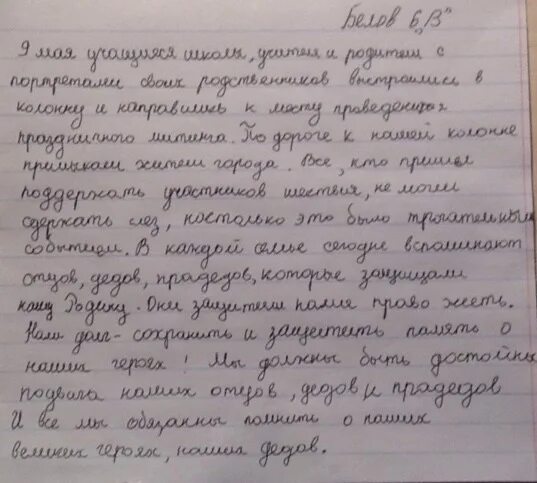 Белов 6„В"
9 мая учащиеся школы, учителя и родители с
портретами своих родственников выстроились в
колонну и направились к месту проведения
праздничного митинга. По дороге к нашей колонне
примыкали жители города. Все, кто пришёл
поддержать участников шествия, не могли
сдержать слёз, настолько это было трогательным
событием. В каждой семье сегодня вспоминают
отцов, дедов, прадедов, которые защищали
нашу Родину. Они защитили право жить.
Наш долг - сохранить и защитить память о
наших героях! Мы должны быть достойны
подвига наших отцов, дедов и прадедов
И все мы обязанны помнить о наших
великих героях, наших дедов.